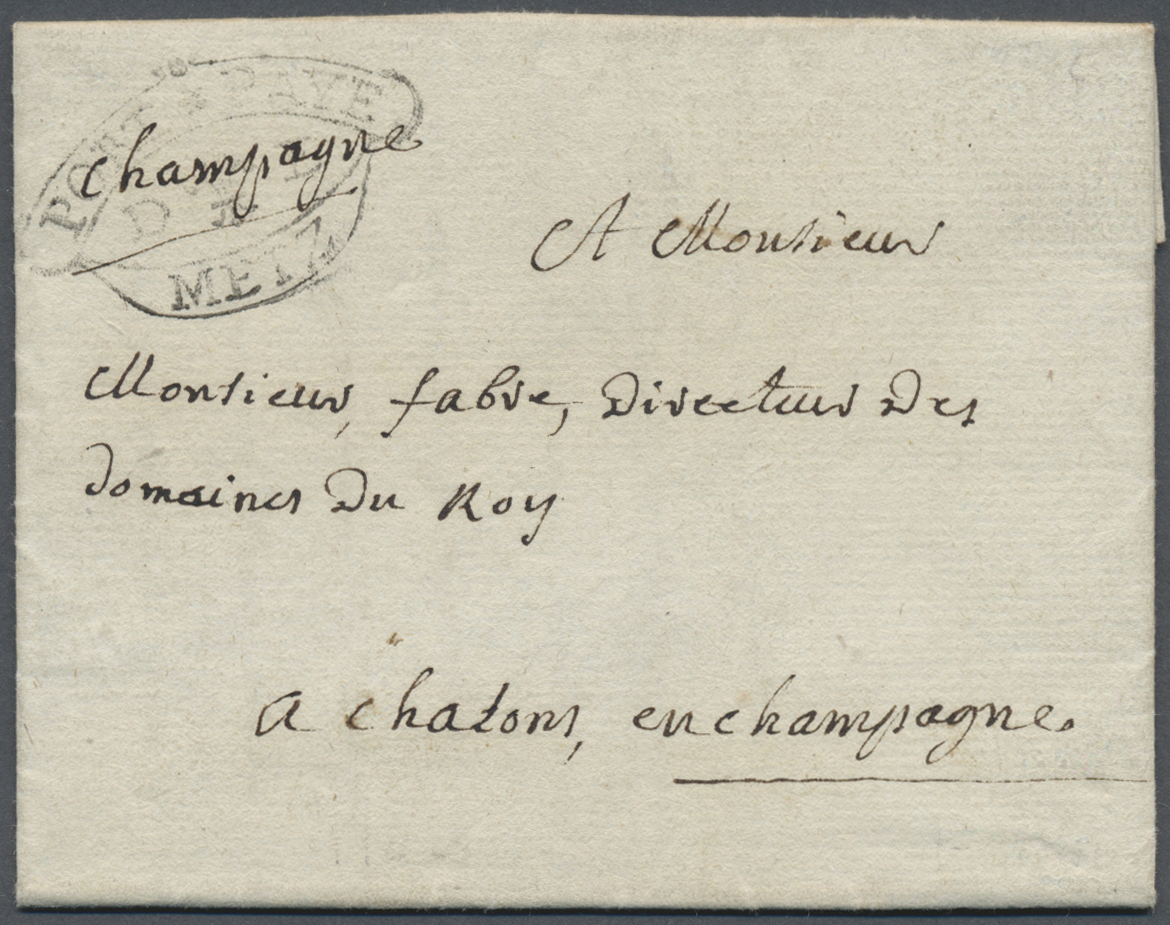 PORT PAYÉ
champagne
D
METZ
A Monsieur
Monsieur, fabre, Directeur Des
domaines Du Roy
a chalons, en champagne.